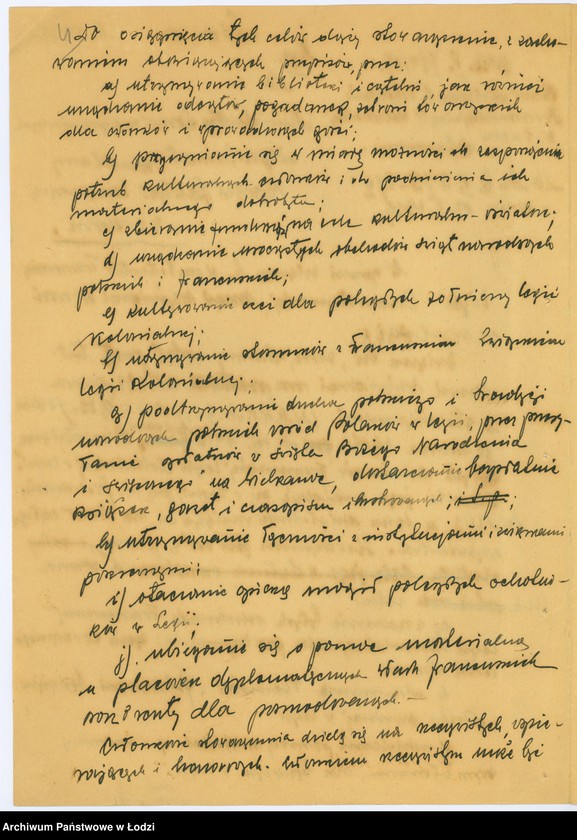 Do osiągnięcia tych celów dąży stowarzyszenie, z zacho-
waniem obowiązujących przepisów, przez:
a) utrzymywanie biblioteki i czytelni, jak również
urządzanie odczytów, pogadanek, zebrań towarzyskich
dla członków i wprowadzonych gości;
b) przyczynianie się w miarę możności do zaspokojenia
potrzeb kulturalnych członków i do podniesienia ich
materialnego dobrobytu;
c) zbieranie funduszy na cele kulturalno-oświatowe;
d) urządzanie uroczystych obchodów świąt narodowych
polskich i francuskich;
e) kultywowanie czci dla poległych żołnierzy legii
Kolonialnej;
f) utrzymywanie stosunków z Francuskim Związkiem
Legii Kolonialnej;
g) podtrzymywanie ducha polskiego i tradycji
narodowych polskich wśród Polaków w legii, przez przesy-
łanie opłatków w święta Bożego Narodzenia
i święconego na Wielkanoc, dostarczanie bezpłatnie
książek, gazet i czasopism ilustrowanych;
h) utrzymywanie łączności z instytucjami i związkami
pokrewnymi;
i) otaczanie opieką mogił poległych ochotni-
ków w Legii;
j) ubieganie się o pomoc materialną
u placówek dyplomatycznych władz francuskich
oraz o renty dla poszkodowanych.-
Członkowie stowarzyszenia dzielą się na rzeczywistych, wspie-
rających i honorowych. Członkiem rzeczywistym może być
Archiwum Państwowe w Łodzi